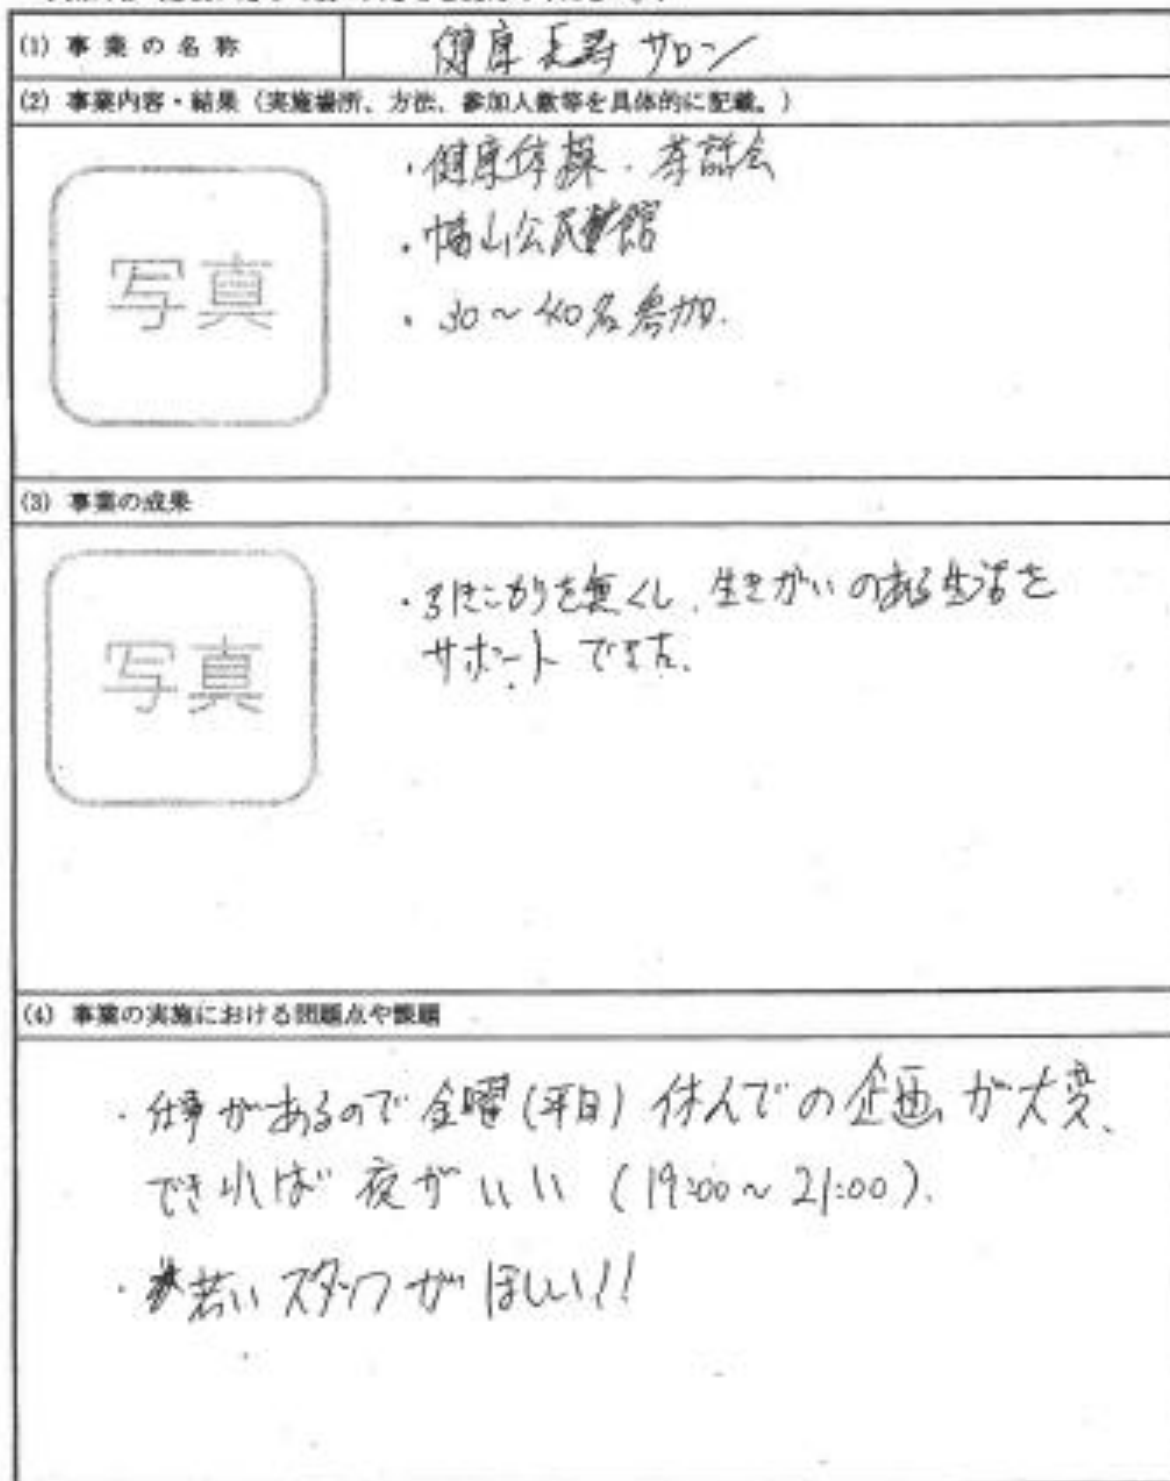 (1) 事業の名称
健康長寿サロン
(2) 事業内容・結果（実施場所、方法、参加人数等を具体的に記載。）
・健康体操・茶話会
写真
・幡山公民館
・30～40名参加.
(3) 事業の成果
・引きこもりを無くし、生きがいのある生活を
サポートできた.
写真
(4) 事業の実施における問題点や課題
・仕事があるので金曜(平日)休んでの企画が大変、
できれば夜がいい(19:00～21:00).
・若いスタッフがほしい!!